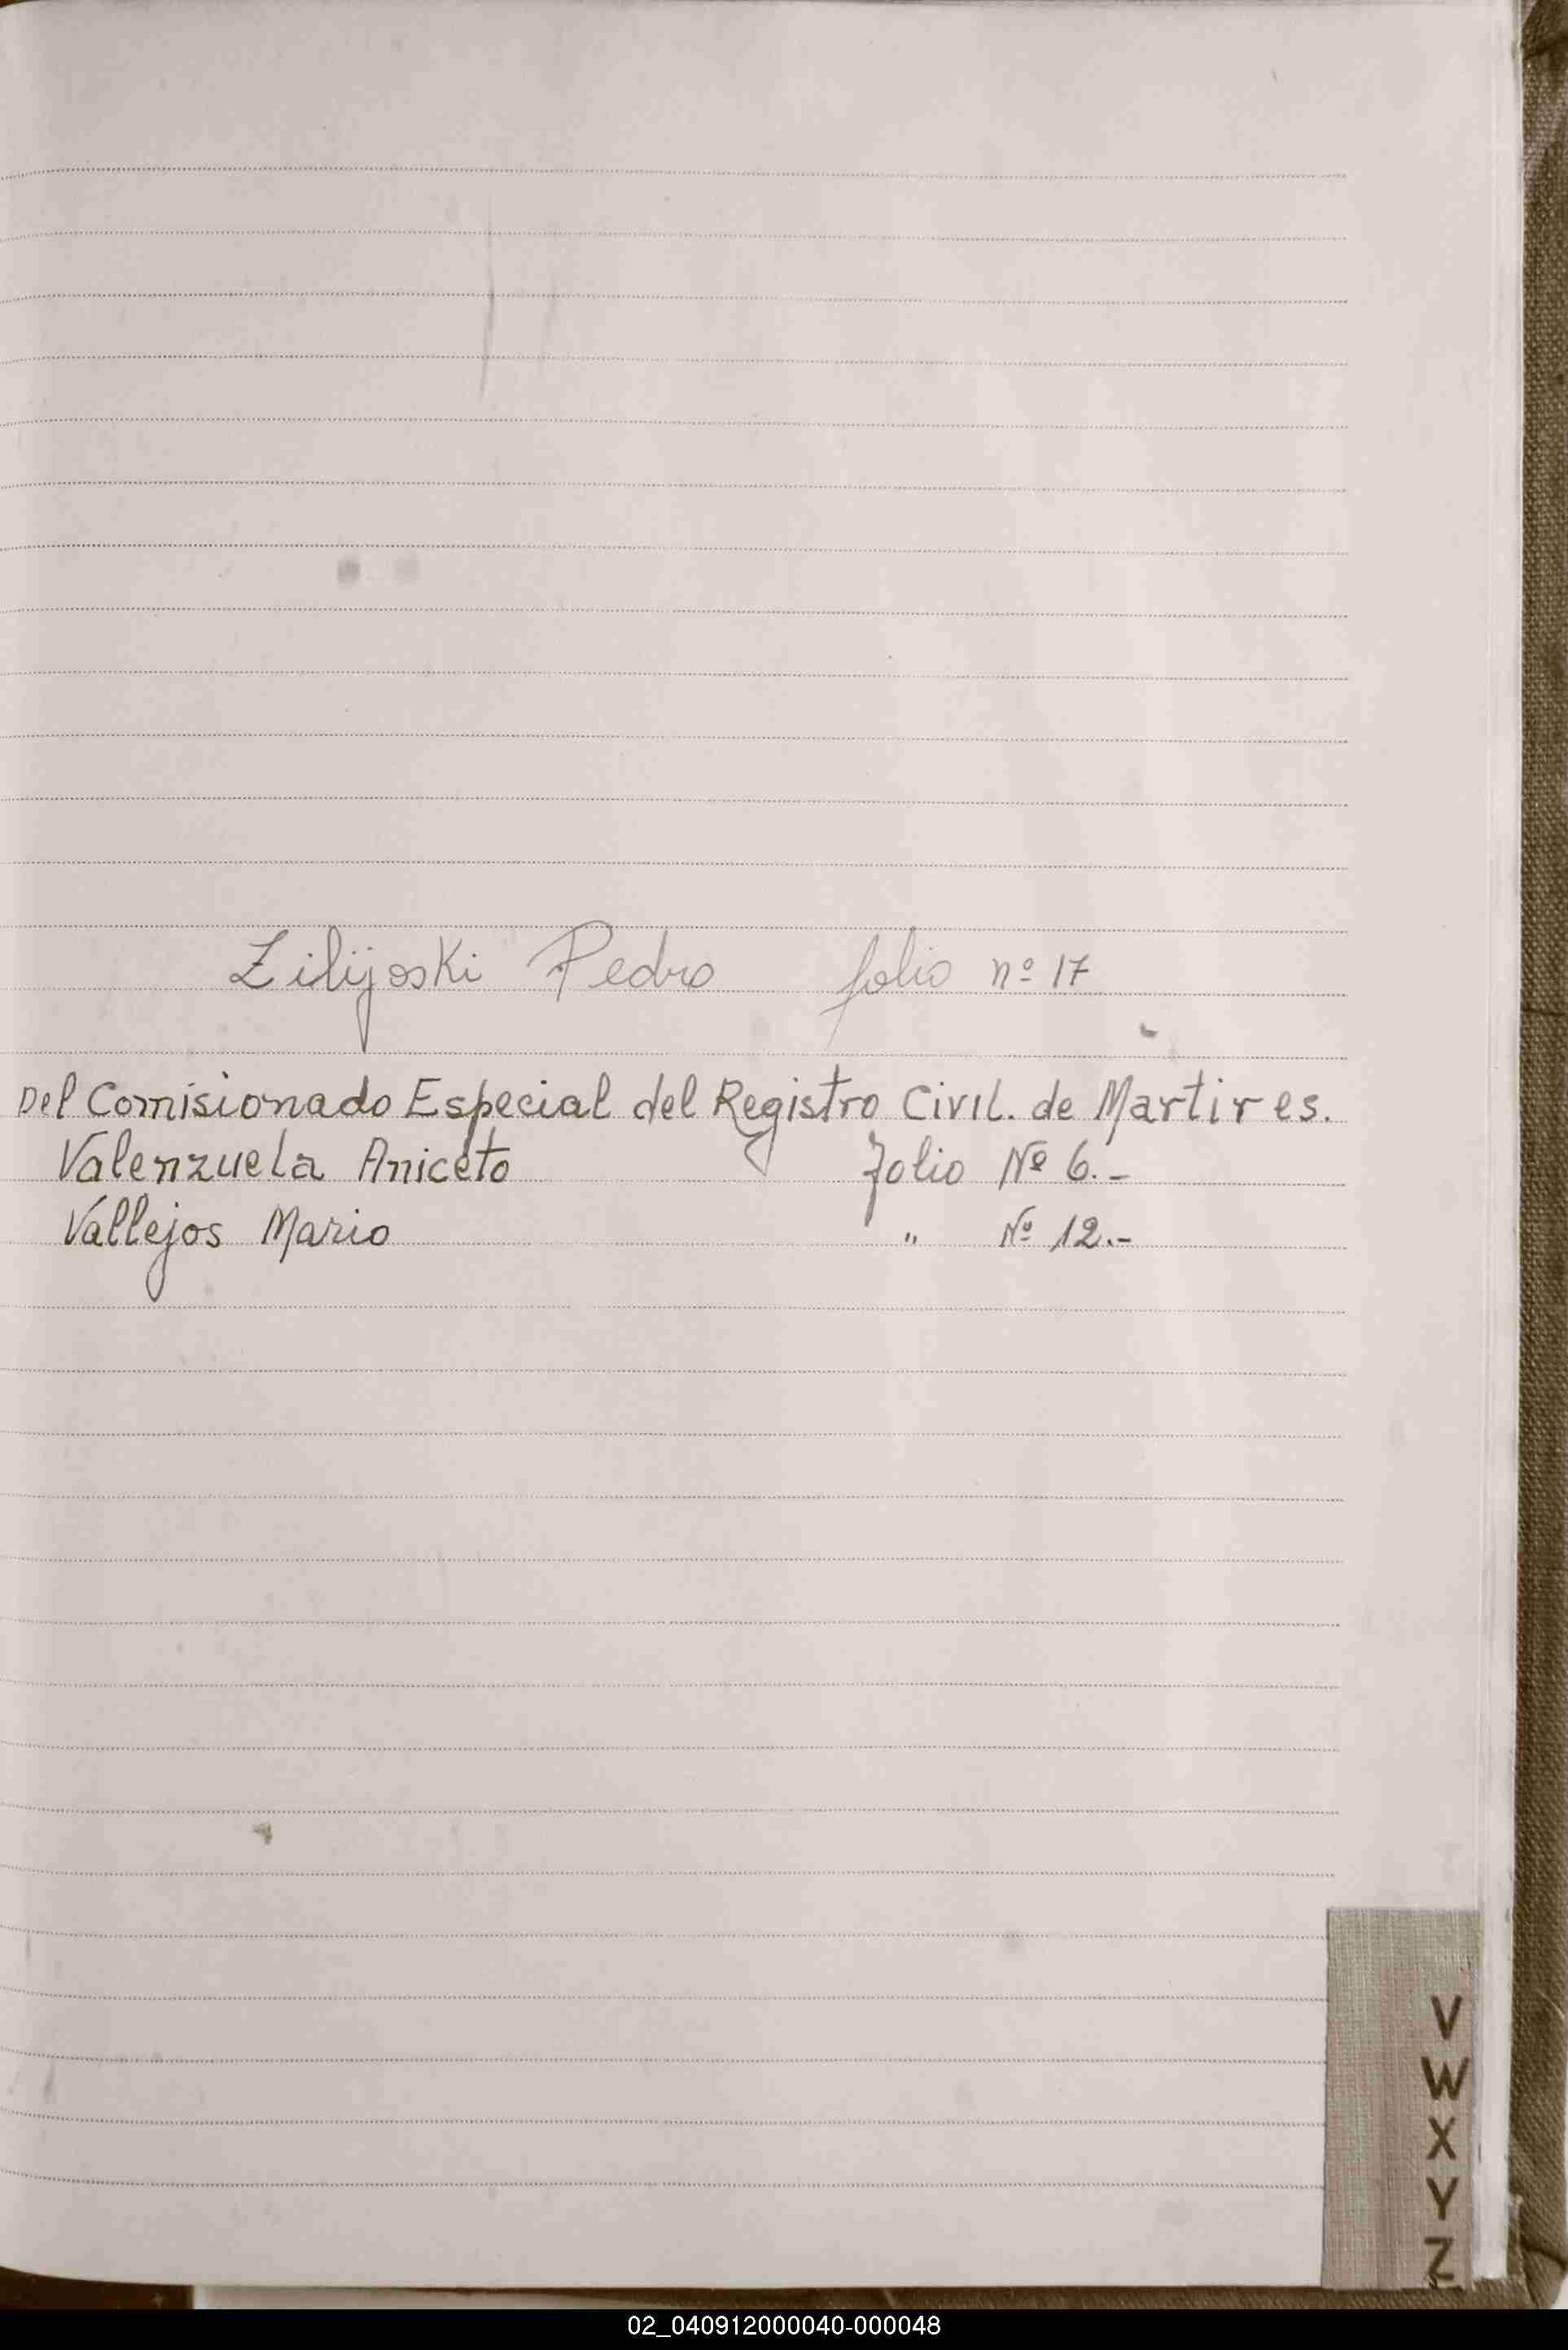 Zilijoski Pedro folio nº 17
Del Comisionado Especial del Registro Civil. de Martires.
Valenzuela Aniceto Folio Nº 6.-
Vallejos Mario " Nº 12.-
V
W
X
Y
Z
02_040912000040-000048